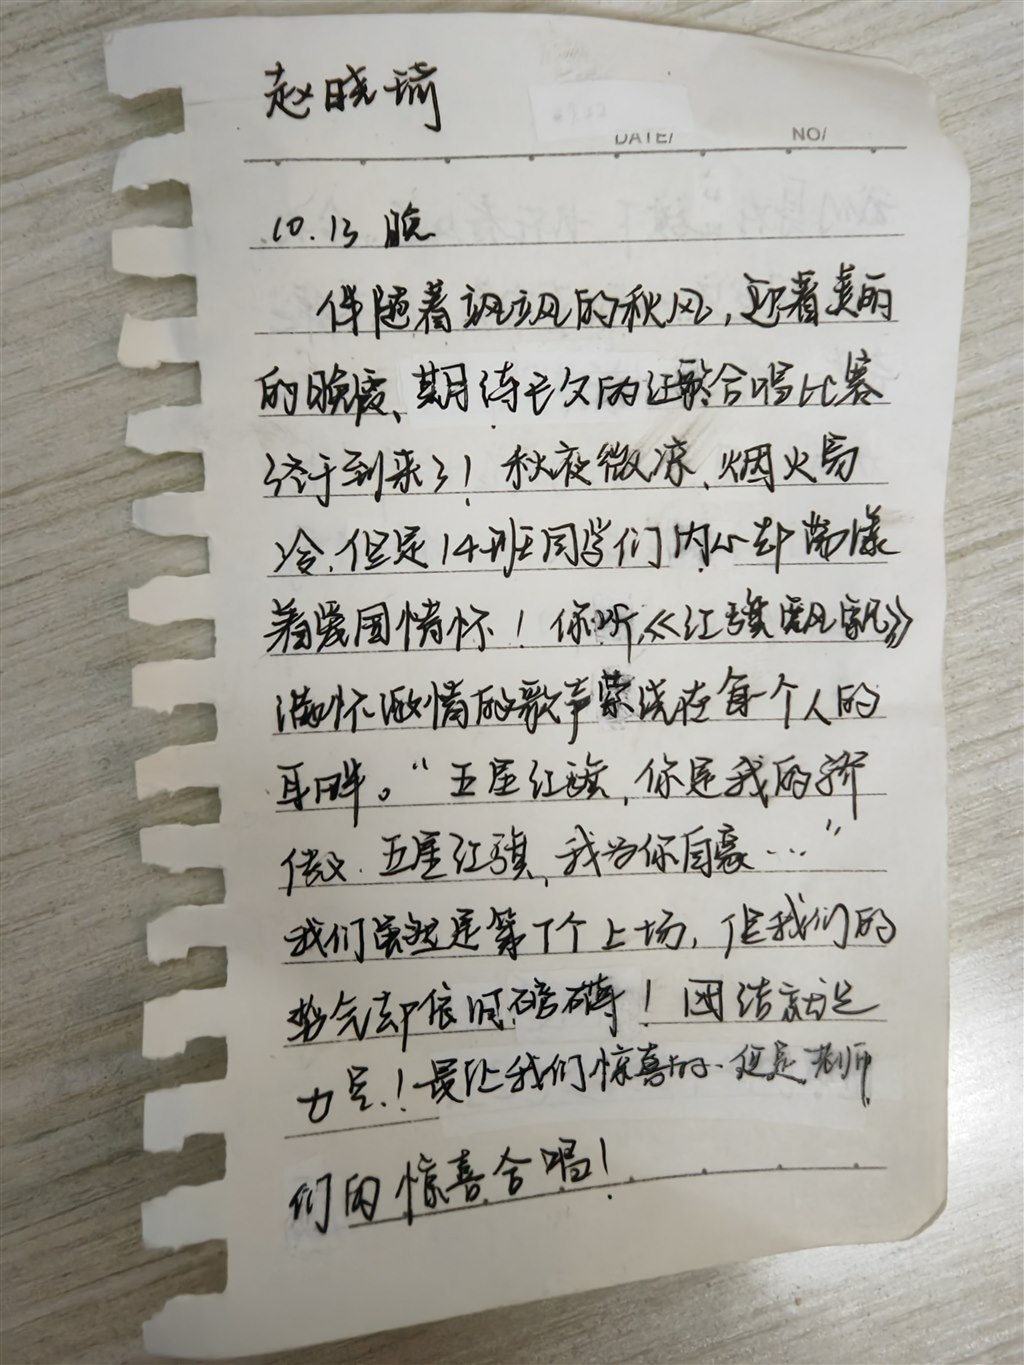 赵晓琦
DATE/ NO/
10.13 晚
伴随着飒飒的秋风,迎着美丽
的晚霞、期待已久的红歌合唱比赛
终于到来了!秋夜微凉、烟火易
冷.但是14班同学们内心却荡漾
着爱国情怀!你听,《红旗飘飘》
满怀激情的歌声萦绕在每一个人的
耳畔。“五星红旗,你是我的骄
傲.五星红旗,我为你自豪…”
我们虽然是第丁个上场,但我们的
势气却依旧磅礴!团结就是
力量!最让我们惊喜的.但是老师
们的惊喜合唱!